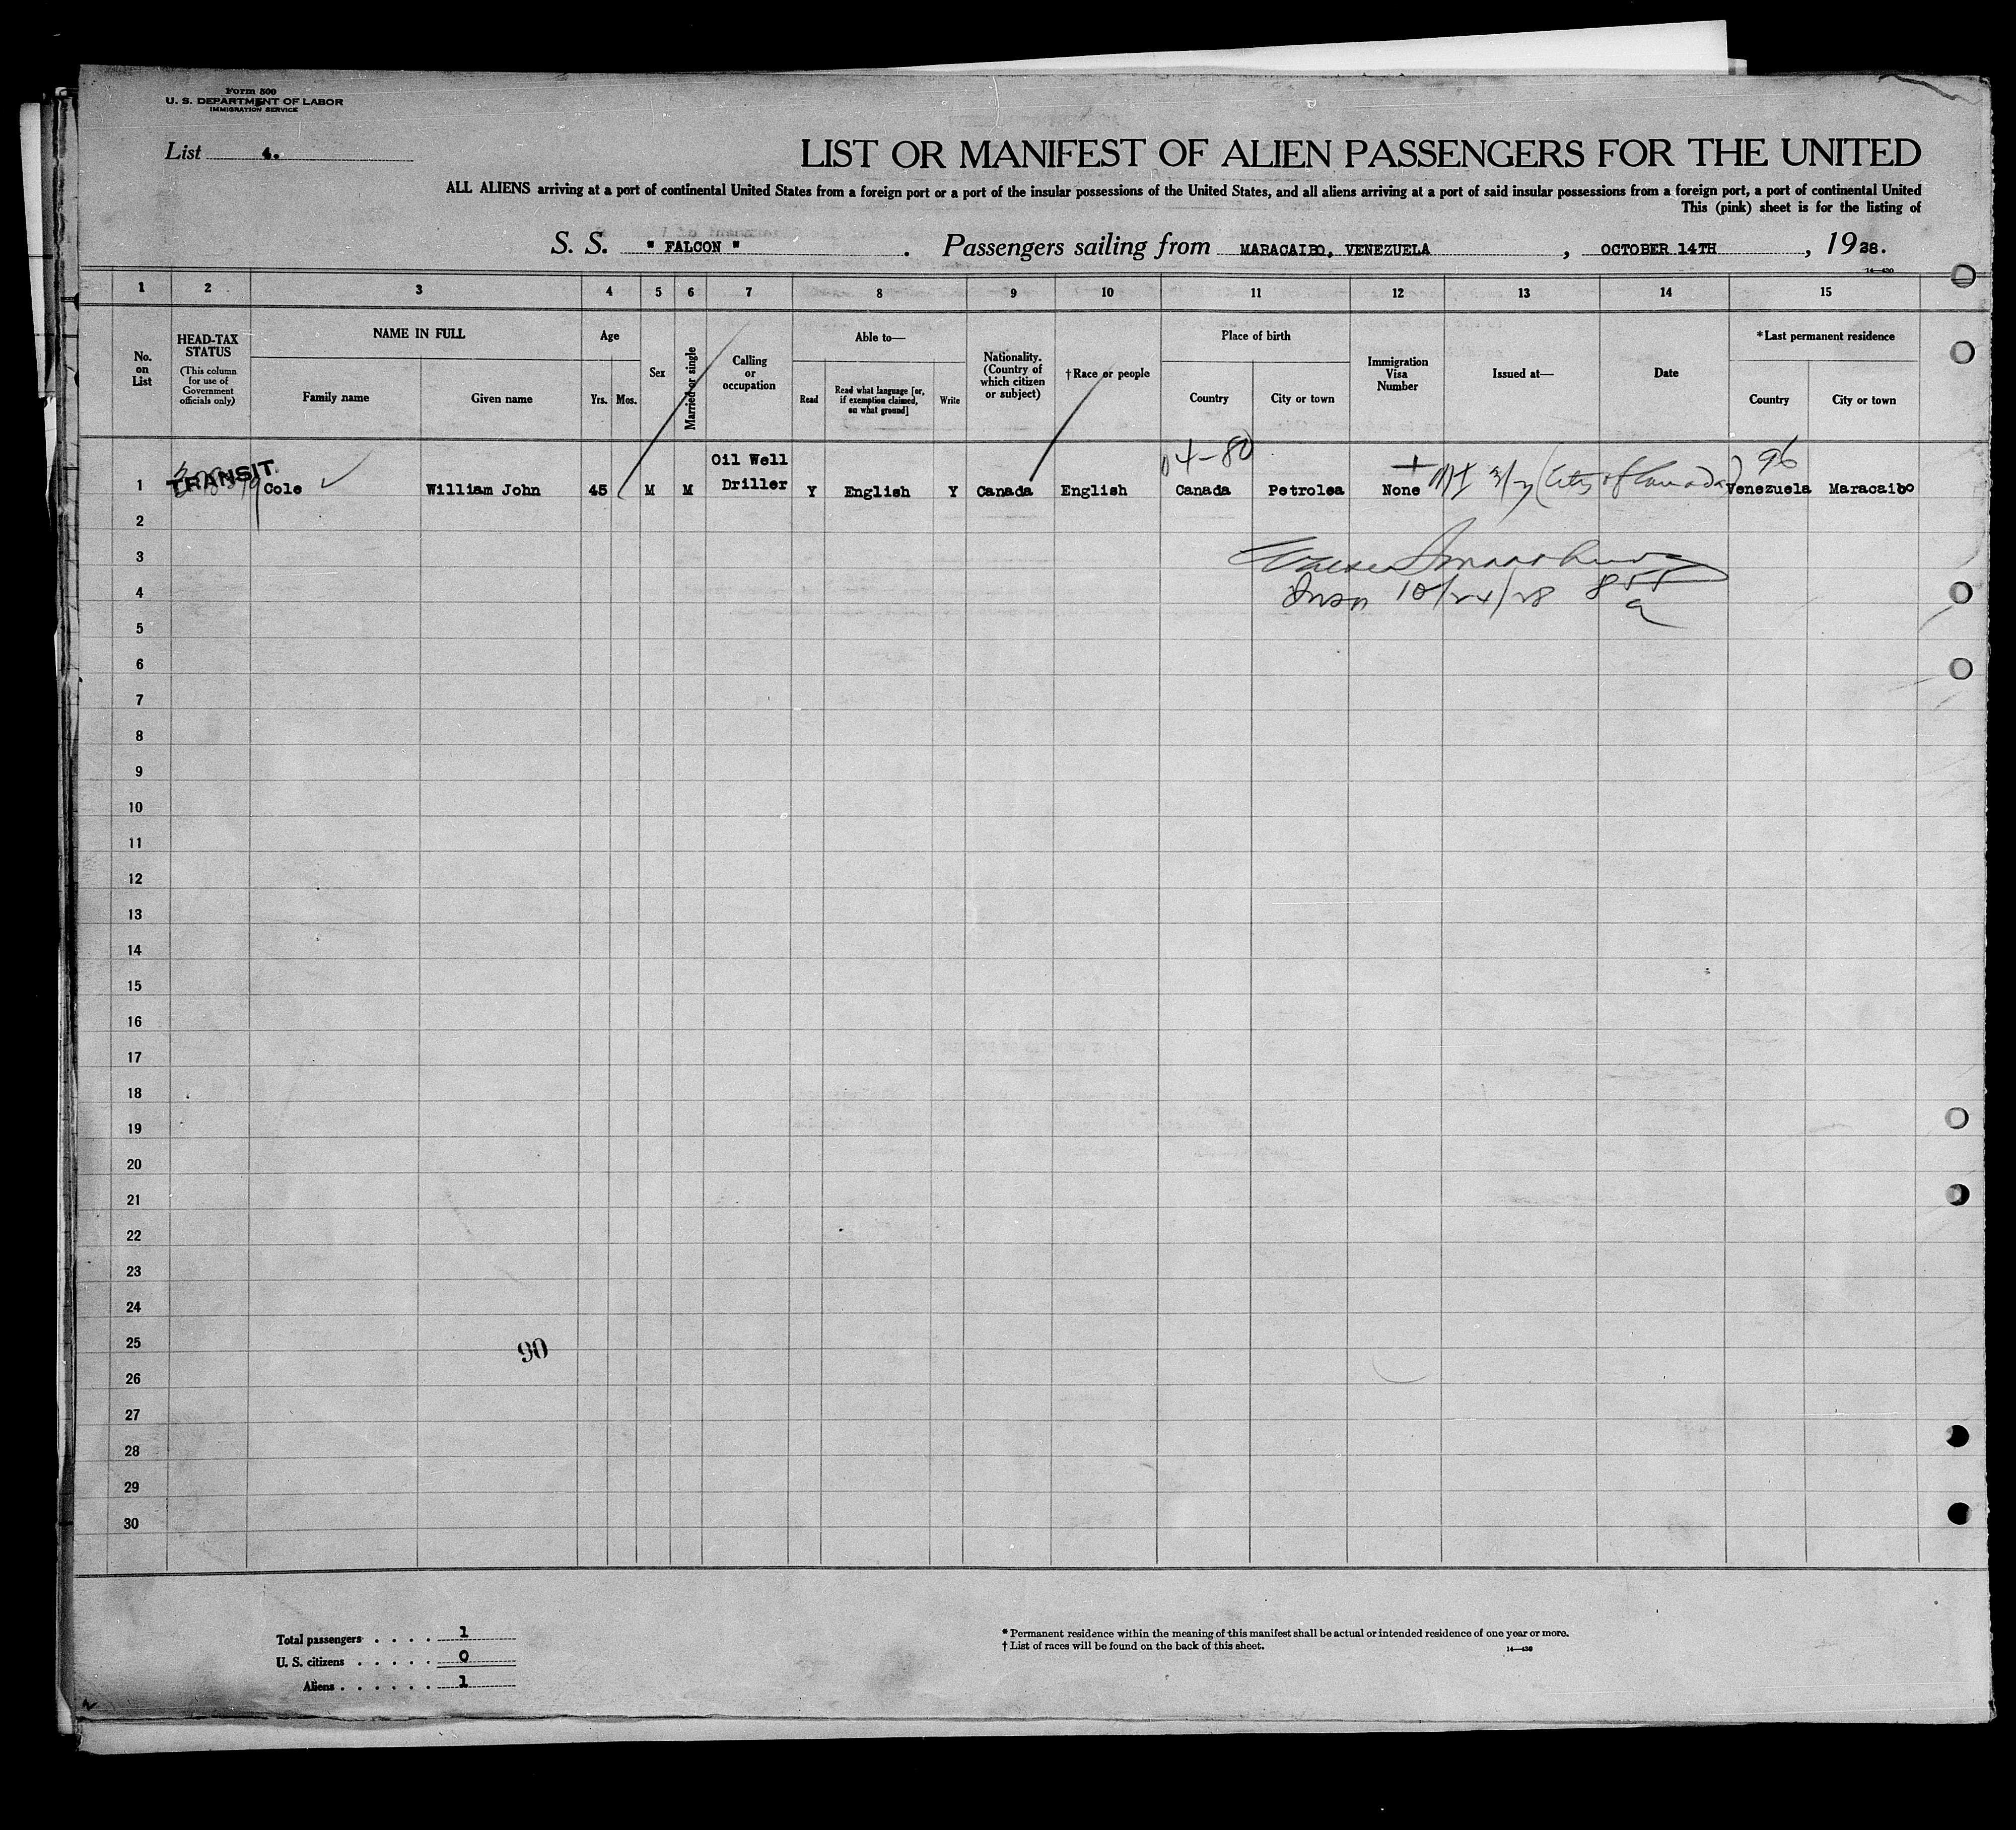 Form 500
U. S. DEPARTMENT OF LABOR
IMMIGRATION SERVICE
List 4.
LIST OR MANIFEST OF ALIEN PASSENGERS FOR THE UNITED
ALL ALIENS arriving at a port of continental United States from a foreign port or a port of the insular possessions of the United States, and all aliens arriving at a port of said insular possessions from a foreign port, a port of continental United
This (pink) sheet is for the listing of
S. S. " FALCON " . Passengers sailing from MARACAIBO, VENEZUELA , OCTOBER 14TH , 1928.
14—430
1 2 3 4 5 6 7 8 9 10 11 12 13 14 15
No. on List
HEAD-TAX STATUS (This column for use of Government officials only)
NAME IN FULL
Family name
Given name
Age
Yrs. Mos.
Sex
Married or single
Calling or occupation
Able to—
Read
Read what language [or, if exemption claimed, on what ground]
Write
Nationality. (Country of which citizen or subject)
†Race or people
Place of birth
Country
City or town
Immigration Visa Number
Issued at—
Date
*Last permanent residence
Country
City or town
04-80
96
1 TRANSIT Cole William John 45 M M Oil Well Driller Y English Y Canada English Canada Petrolea None Venezuela Maracaibo
2
3
4 Insp 10/24/28 855 a
5
6
7
8
9
10
11
12
13
14
15
16
17
18
19
20
21
22
23
24
25
90
26
27
28
29
30
Total passengers . . . . 1
U. S. citizens . . . . . 0
Aliens . . . . . . 1
* Permanent residence within the meaning of this manifest shall be actual or intended residence of one year or more.
† List of races will be found on the back of this sheet.
14—430